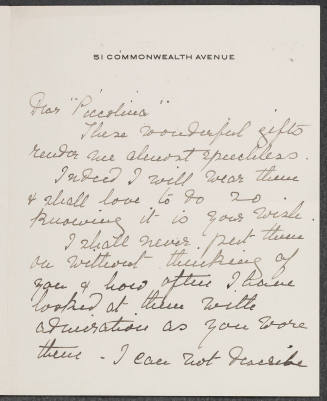 51 COMMONWEALTH AVENUE
Dear "Piccolina"
These wonderful gifts
render me almost speechless.
Indeed I will wear them
& shall love to do so
knowing it is your wish.
I shall never put them
on without thinking of
you & how often I have
looked at them with
admiration as you wore
them - I can not describe